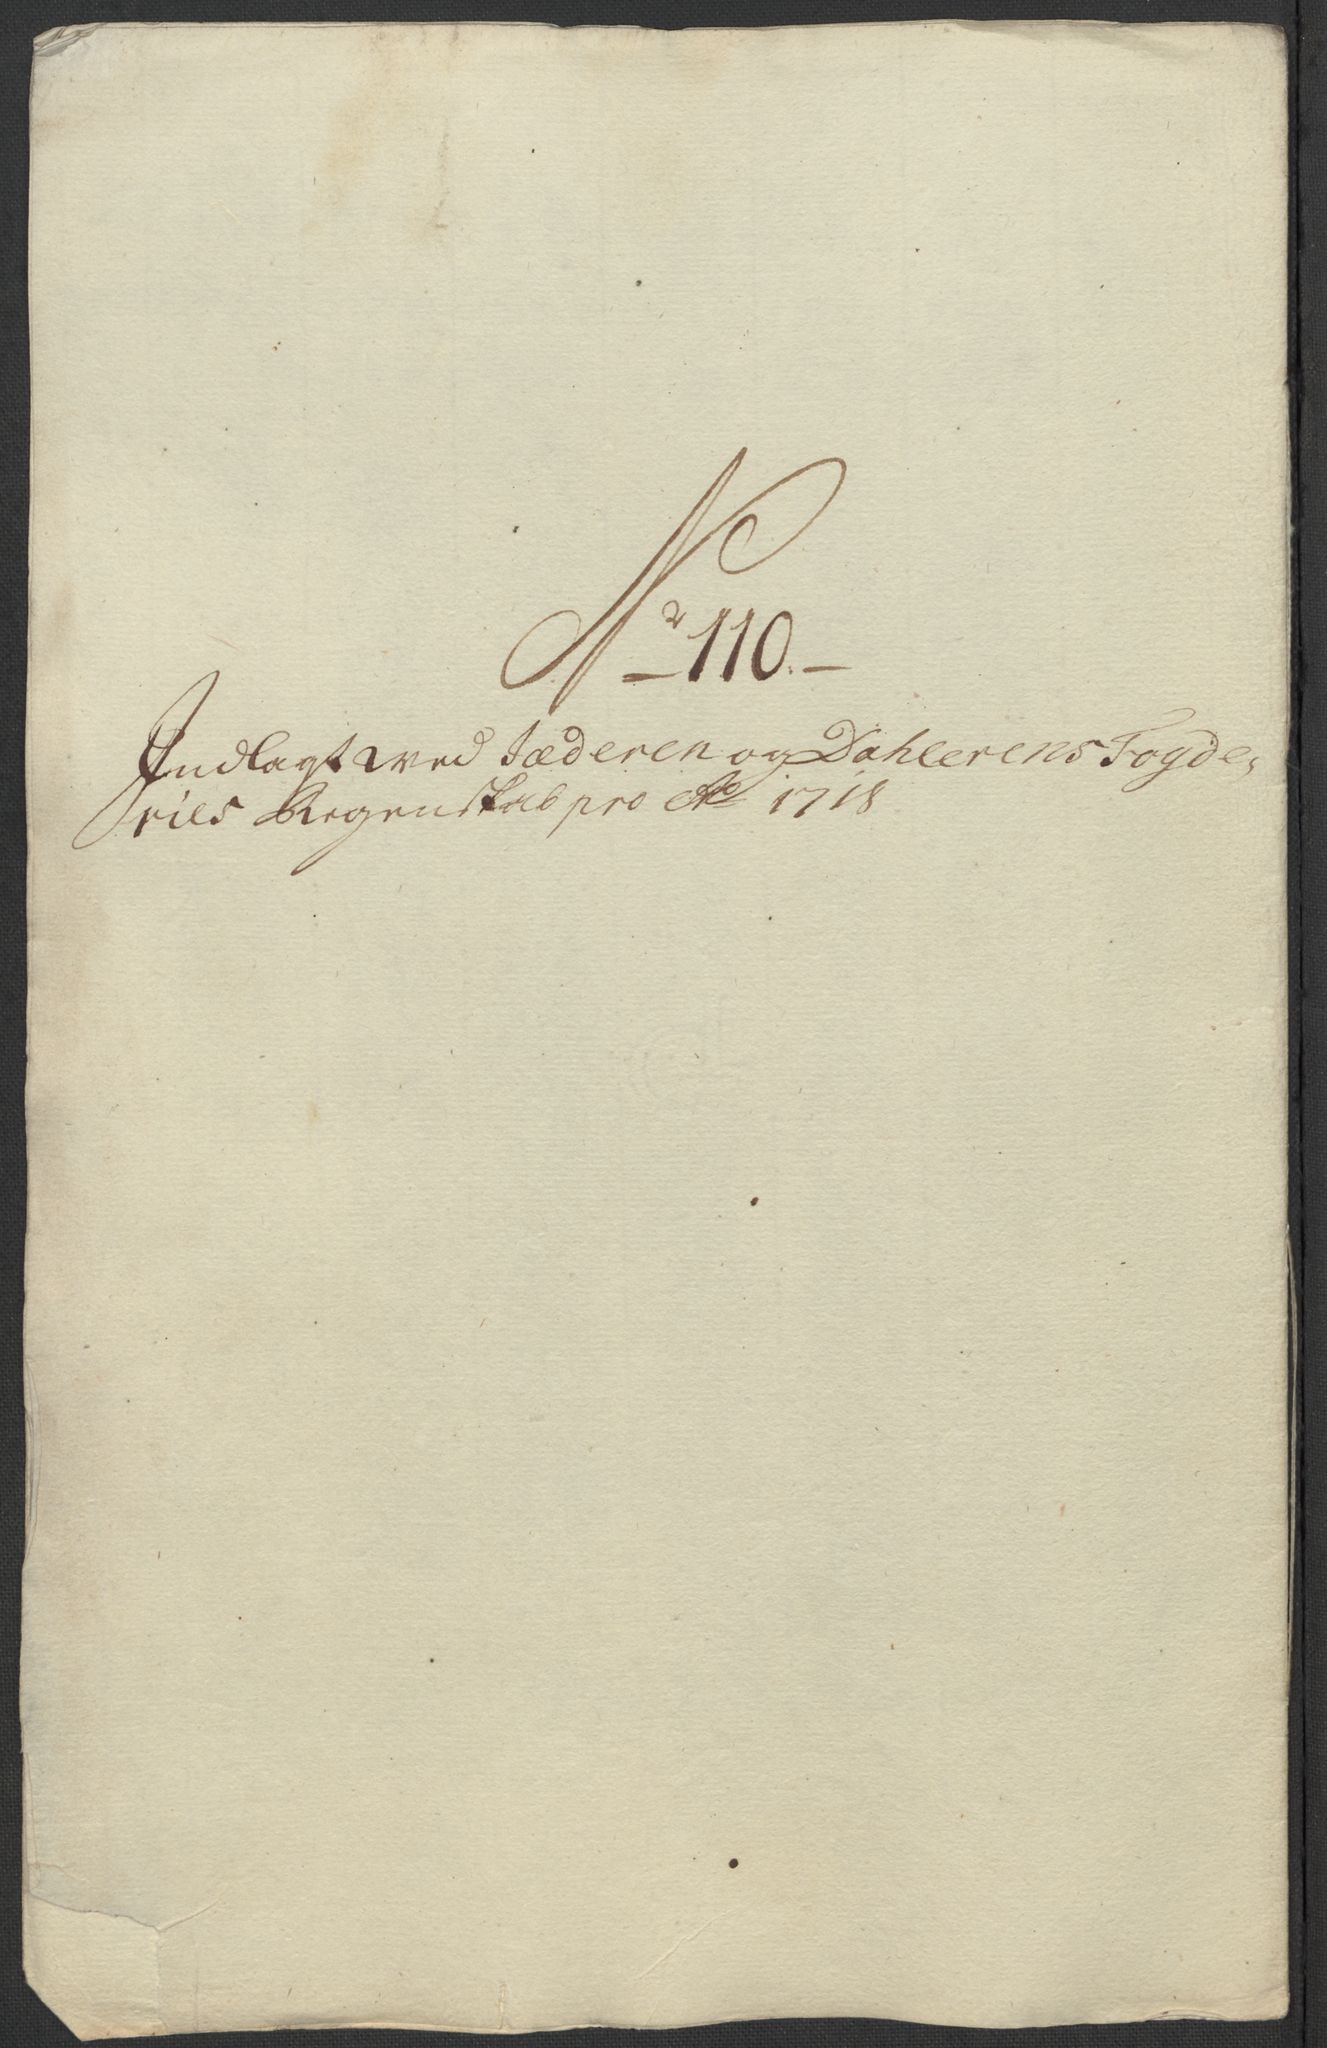 No 110.
Indlagt wed Jæderen og Dahlerens Fogde,
riis Regenskab pro Ao 1718